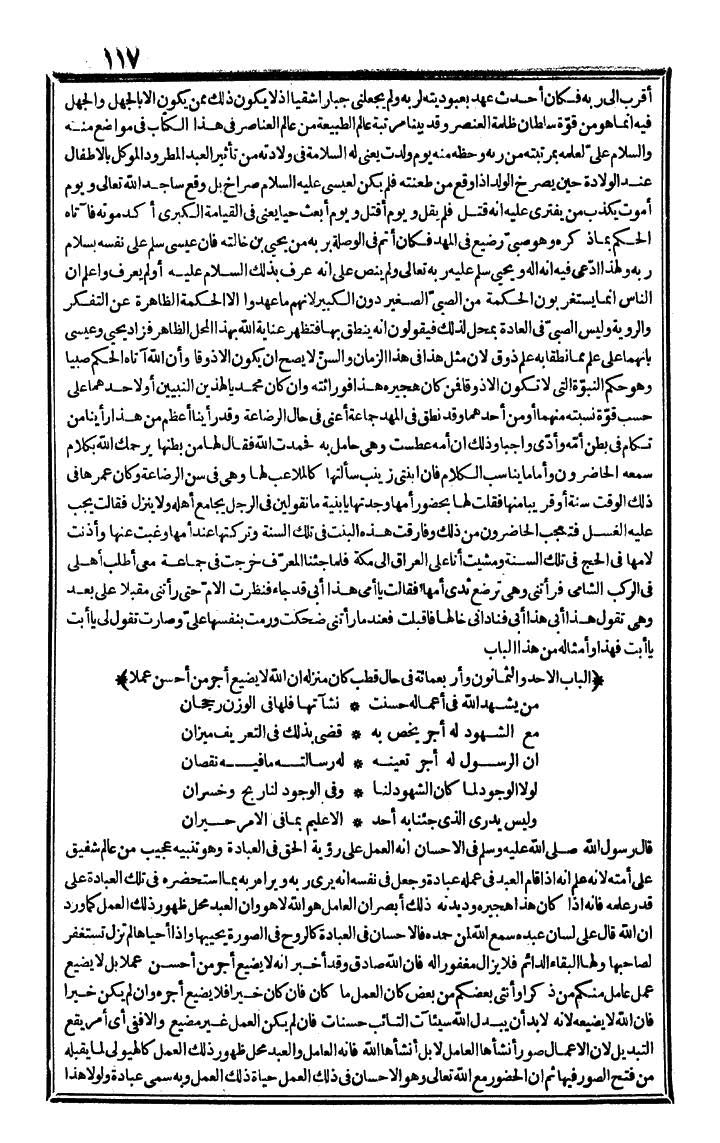 ١١٧
أقرب الى ربه فكان أحدث عهد بعبوديته لربه ولم يجعلنى جبارا شقيا اذ لا يكون ذلك ممن يكون الا بالجهل والجهل
فيه انما هو من قوّة سلطان ظلمة العنصر وقد بينا مرتبة عالم الطبيعة من عالم العناصر فى هذا الكتاب فى مواضع منه
والسلام علىّ لعلمه بمرتبته من ربه وحظه منه يوم ولدت يعنى له السلامة فى ولادته من تأثير العبد المطرود الموكل بالاطفال
عند الولادة حين يصرخ الولد اذا وقع من طعنته فلم يكن لعيسى عليه السلام صراخ بل وقع ساجد الله تعالى ويوم
أموت يكذب من يفترى عليه انه قتل فلم يقل ويوم أقتل ويوم أبعث حيا يعنى فى القيامة الكبرى أكد موته فا آتاه
الحكم بماذ كره وهو صبىّ رضيع فى المهد فكان أتم فى الوصلة بربه من يحيى بن خالته فان عيسى سلم على نفسه بسلام
ربه ولهذا ادّعى فيه انه اله ويحيى سلم عليه ربه تعالى ولم ينص على انه عرف بذلك السلام عليه أولم يعرف واعلم ان
الناس انما يستغربون الحكمة من الصبىّ الصغير دون الكبير لانهم ما عهدوا الا الحكمة الظاهرة عن التفكر
والروية وليس الصبىّ فى العادة بمحل لذلك فيقولون انه ينطق بها فتظهر عناية الله بهذا المحل الظاهر فزاد يحيى وعيسى
بانهما على علم مما نطقا به علم ذوق لان مثل هذا فى هذا الزمان والسنّ لا يصح ان يكون الا ذوقا وأن الله آتاه الحكم صبيا
وهو حكم النبوّة التى لا تكون الا ذوقا فمن كان هجيره هذا فوراثته وان كان محمديا لهذين النبيين أولاحدهما على
حسب قوّة نسبته منهما أو من أحدهما وقد نطق فى المهد جماعة أعنى فى حال الرضاعة وقد رأينا أعظم من هذا رأينا من
تكلم فى بطن أمّه وأدّى واجبا وذلك ان أمه عطست وهى حامل به فحمدت الله فقال لها من بطنها يرحمك الله بكلام
سمعه الحاضرون وأما ما يناسب الكلام فان ابنتى زينب سألتها كالملاعب لها وهى فى سن الرضاعة وكان عمرها فى
ذلك الوقت سنة أو قريبا منها فقلت لها بحضور أمها وجدتها يا بنية ما تقولين فى الرجل يجامع أهله ولا ينزل فقالت يجب
عليه الغسل فتعجب الحاضرون من ذلك وفارقت هذه البنت فى تلك السنة وتركتها عند أمها وغبت عنها وأذنت
لامها فى الحج فى تلك السنة ومشيت أنا على العراق الى مكة فلما جئنا المعرّف خرجت فى جماعة معى أطلب أهلى
فى الركب الشامى فرأتنى وهى ترضع ثدى أمها فقالت يا أمى هذا أبى قد جاء فنظرت الامّ حتى رأتنى مقبلا على بعد
وهى تقول هذا أبى هذا أبى فنادانى خالها فاقبلت فعندما رأتنى ضحكت ورمت بنفسها علىّ وصارت تقول لى يا أبت
يا أبت فهذا وأمثاله من هذا الباب
﴿الباب الاحد والثمانون وأربعمائة فى حال قطب كان منزله ان الله لا يضيع أجر من أحسن عملا﴾
من يشهد الله فى أعماله حسنت * نشآتها فلها فى الوزن رجحان
مع الشهود له أجر يخص به * قضى بذلك فى التعريف ميزان
ان الرسول له أجر تعينه * له رسالته ما فيه نقصان
لولا الوجود لما كان الشهود لنا * وفى الوجود لنا ربح وخسران
وليس يدرى الذى جئنا به أحد * الا عليم بما فى الامر حيران
قال رسول الله صلى الله عليه وسلم فى الاحسان انه العمل على رؤية الحق فى العبادة وهو تنبيه عجيب من عالم شفيق
على أمته لانه علم انه اذا قام العبد فى عمله عبادة وجعل فى نفسه انه يرى ربه ويراه ربه بما استحضره فى تلك العبادة على
قدر علمه فانه اذا كان هذا هجيره وديدنه ذلك أبصر ان العامل هو الله لا هو وان العبد محل ظهور ذلك العمل كما ورد
ان الله قال على لسان عبده سمع الله لمن حمده فالاحسان فى العبادة كالروح فى الصورة يحييها واذا أحياها لم تزل تستغفر
لصاحبها ولها البقاء الدائم فلا يزال مغفورا له فان الله صادق وقد أخبر انه لا يضيع أجر من أحسن عملا بل لا يضيع
عمل عامل منكم من ذكر أو أنثى بعضكم من بعض كان العمل ما كان فان كان خيرا فلا يضيع أجره وان لم يكن خيرا
فان الله لا يضيعه لانه لا بد أن يبدل الله سيئات التائب حسنات فان لم يكن العمل غير مضيع والا ففى أى أمر يقع
التبديل لان الاعمال صور أنشأها العامل لا بل أنشأها الله فانه العامل والعبد محل ظهور ذلك العمل كالهيولى لما يقبله
من فتح الصور فيها ثم ان الحضور مع الله تعالى وهو الاحسان فى ذلك العمل حياة ذلك العمل وبه سمى عبادة ولولا هذا